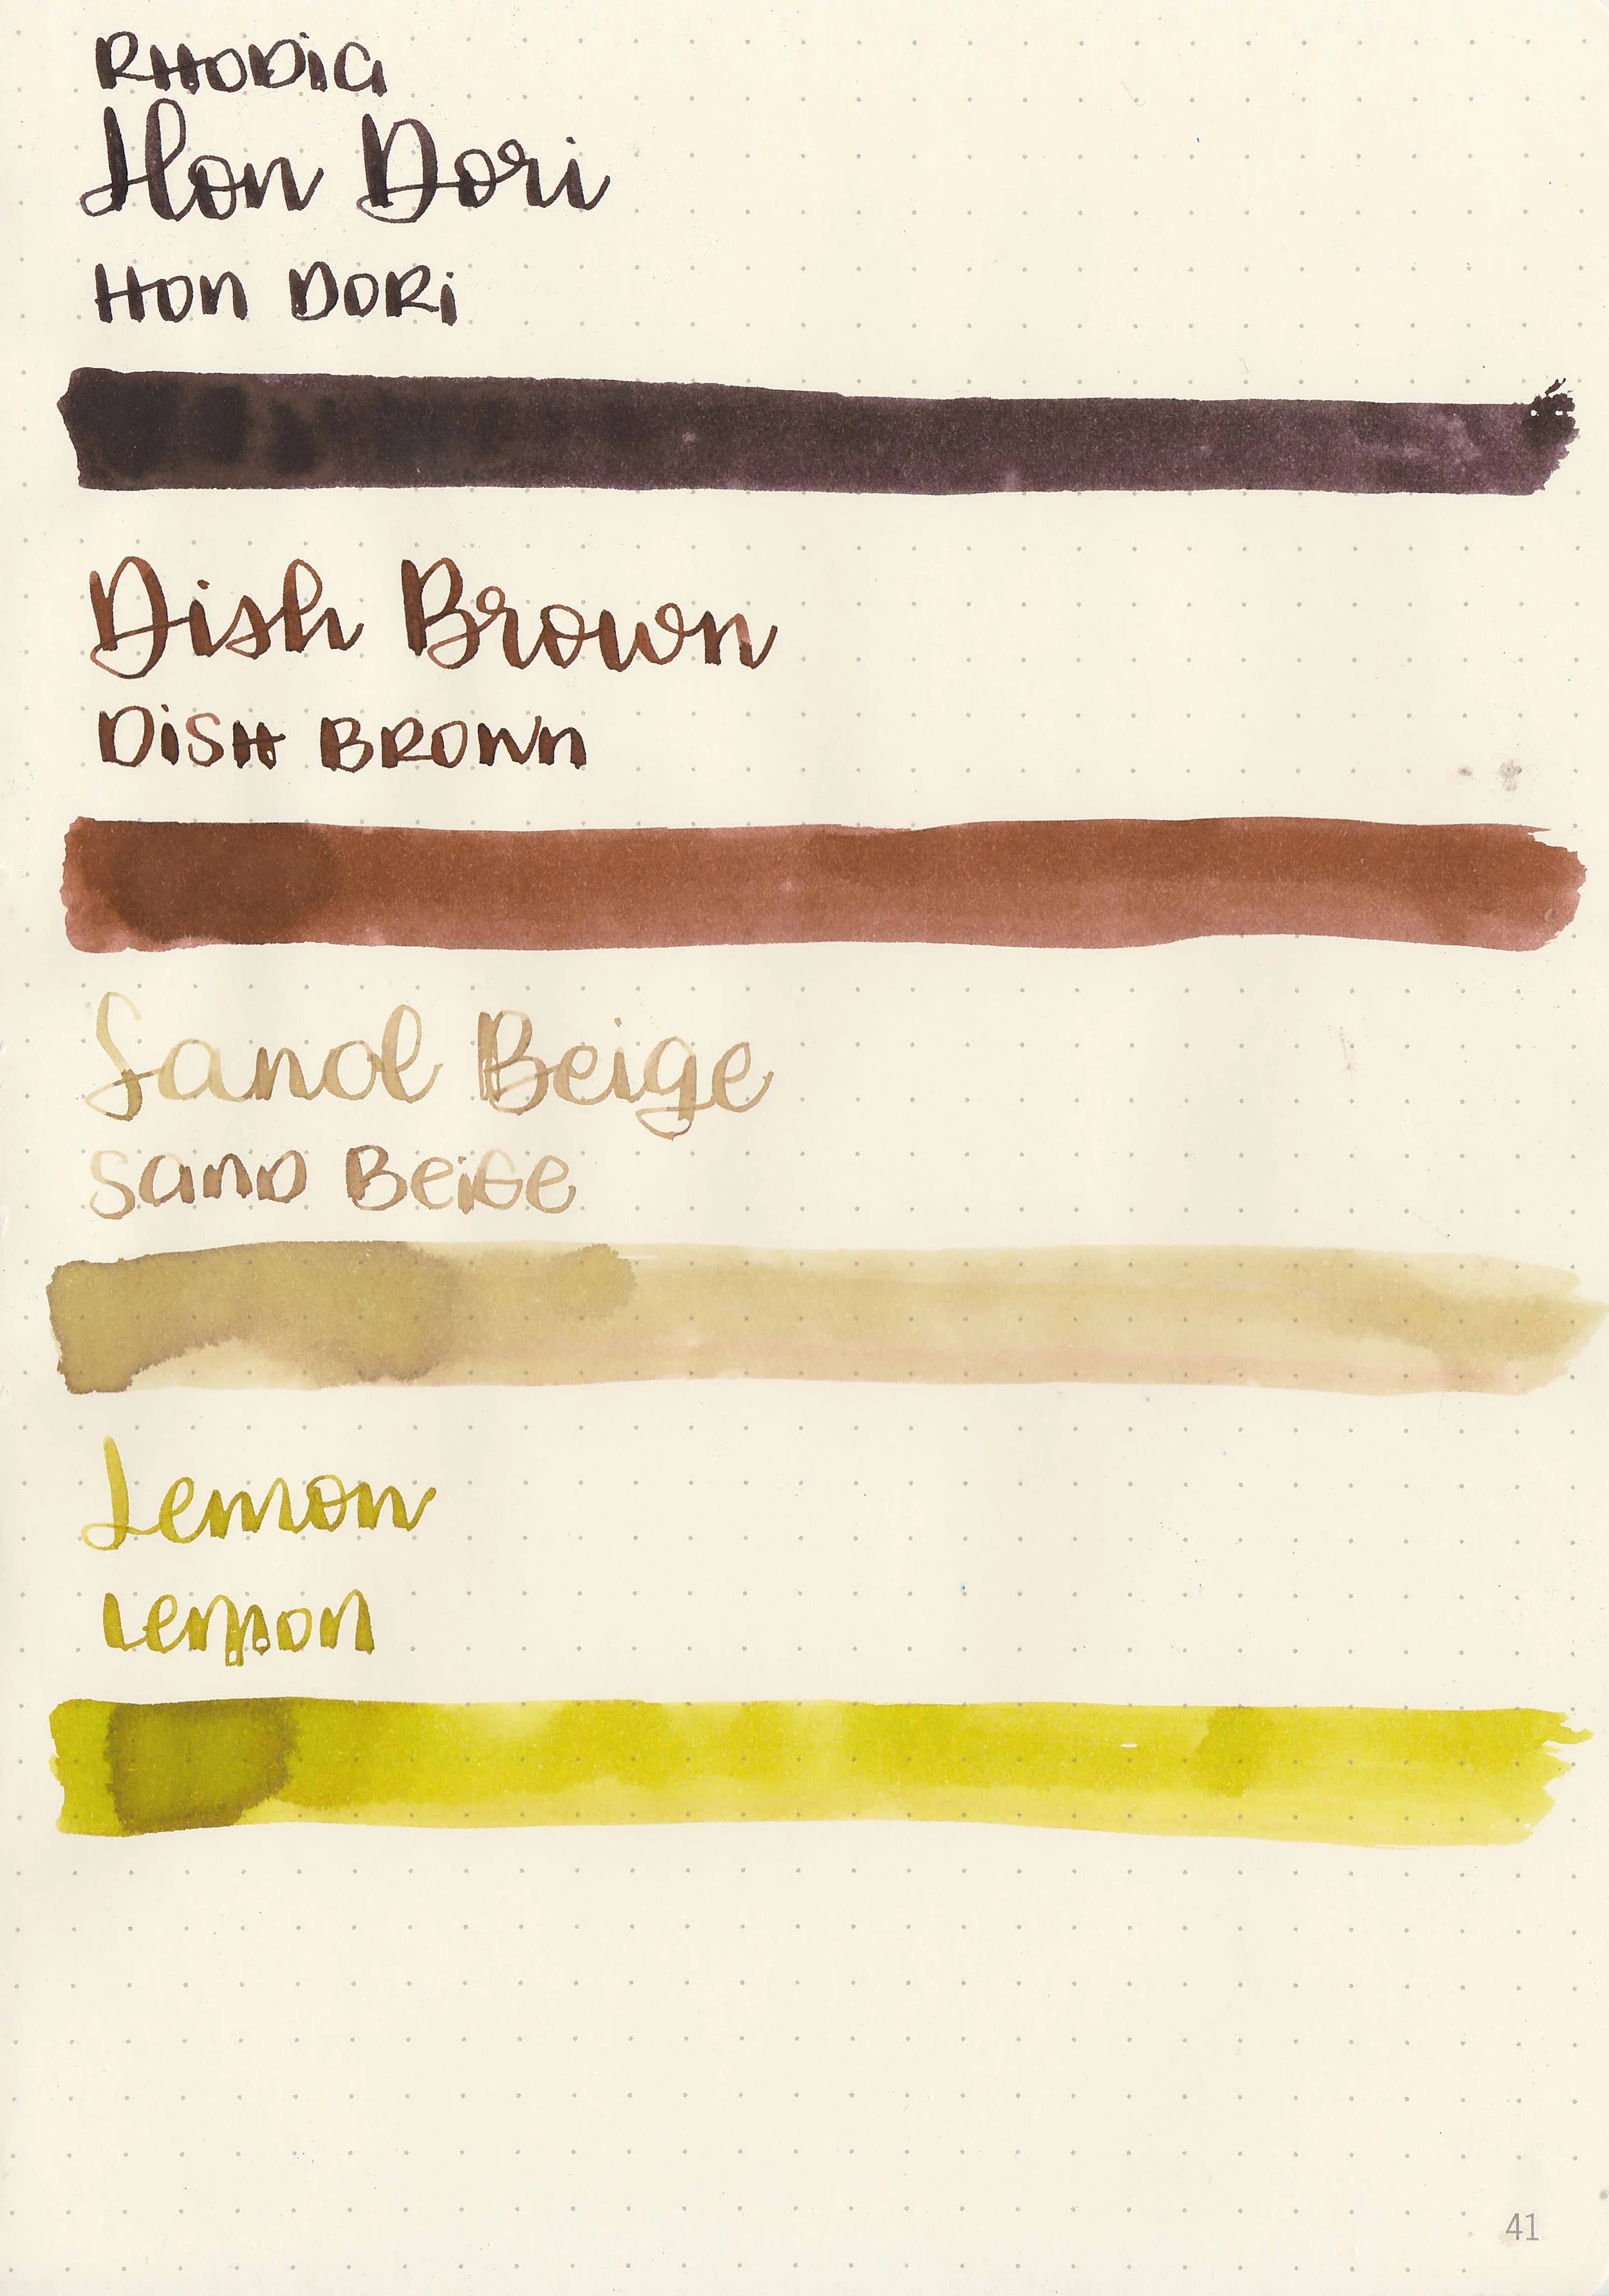 RHODIA
Hon Dori
HON DORI
Dish Brown
DISH BROWN
Sand Beige
SAND BEIGE
Lemon
LEMON
41